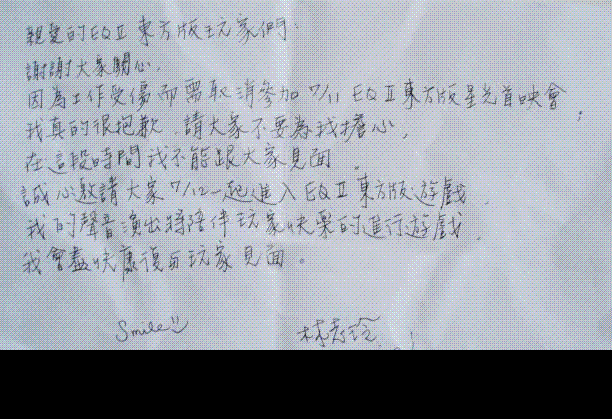 親愛的EQII東方版玩家們:
謝謝大家關心,
因為工作受傷而需取消參加7/11 EQII東方版星光首映會,
我真的很抱歉,請大家不要為我擔心,
在這段時間我不能跟大家見面,
誠心邀請大家7/12一起進入EQII東方版遊戲,
我的聲音演出將陪伴玩家快樂的進行遊戲,
我會盡快康復與玩家見面。
Smile 林志玲